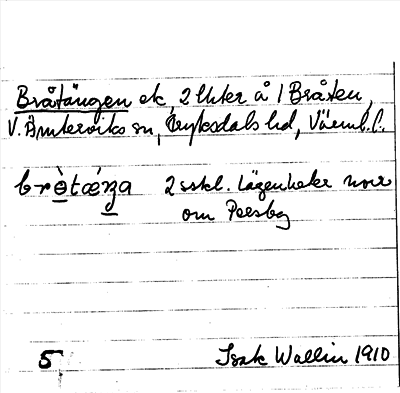 Bråtängen ek, 2 lhter å 1 Bråten,
V. Ämterviks sn, Fryksdals hd, Värml. l.
brɵ̀tǽŋa 2 sskl. lägenheter norr
om Persby
5 Isak Wallin 1910